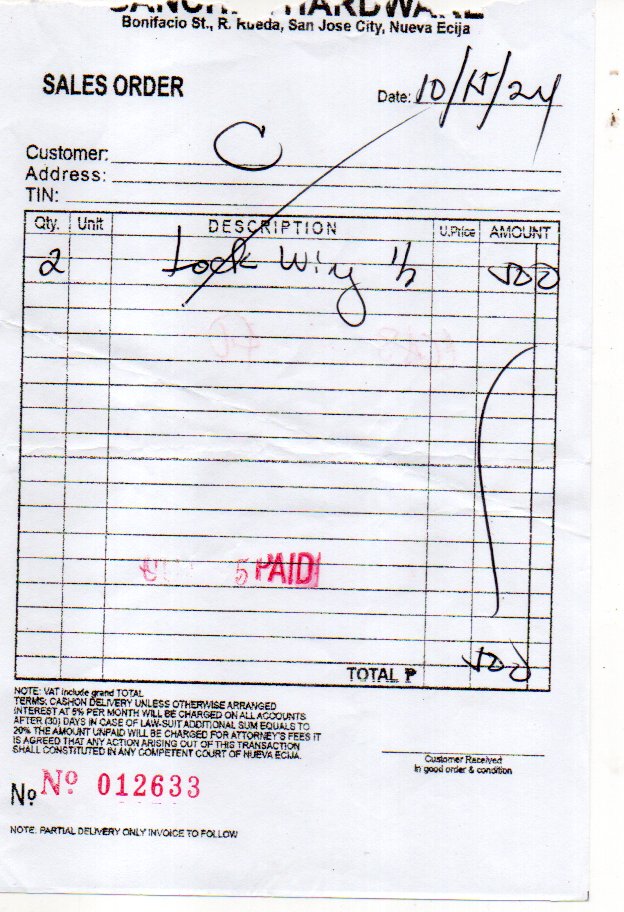 HARDWARE
Bonifacio St., R. Rueda, San Jose City, Nueva Ecija
SALES ORDER
Date: 10/15/24
Customer: C
Address:
TIN:
Qty. Unit DESCRIPTION U.Price AMOUNT
2 Lock 1/2 500
PAID
TOTAL ₱ 500
NOTE: VAT include grand TOTAL
TERMS: CASHON DELIVERY UNLESS OTHERWISE ARRANGED
INTEREST AT 5% PER MONTH WILL BE CHARGED ON ALL ACCOUNTS
AFTER (30) DAYS IN CASE OF LAW-SUIT ADDITIONAL SUM EQUALS TO
20% THE AMOUNT UNPAID WILL BE CHARGED FOR ATTORNEY'S FEES IT
IS AGREED THAT ANY ACTION ARISING OUT OF THIS TRANSACTION
SHALL CONSTITUTED IN ANY COMPETENT COURT OF NUEVA ECIJA.
Customer Received
In good order & condition
Nº Nº 012633
NOTE: PARTIAL DELIVERY ONLY INVOICE TO FOLLOW